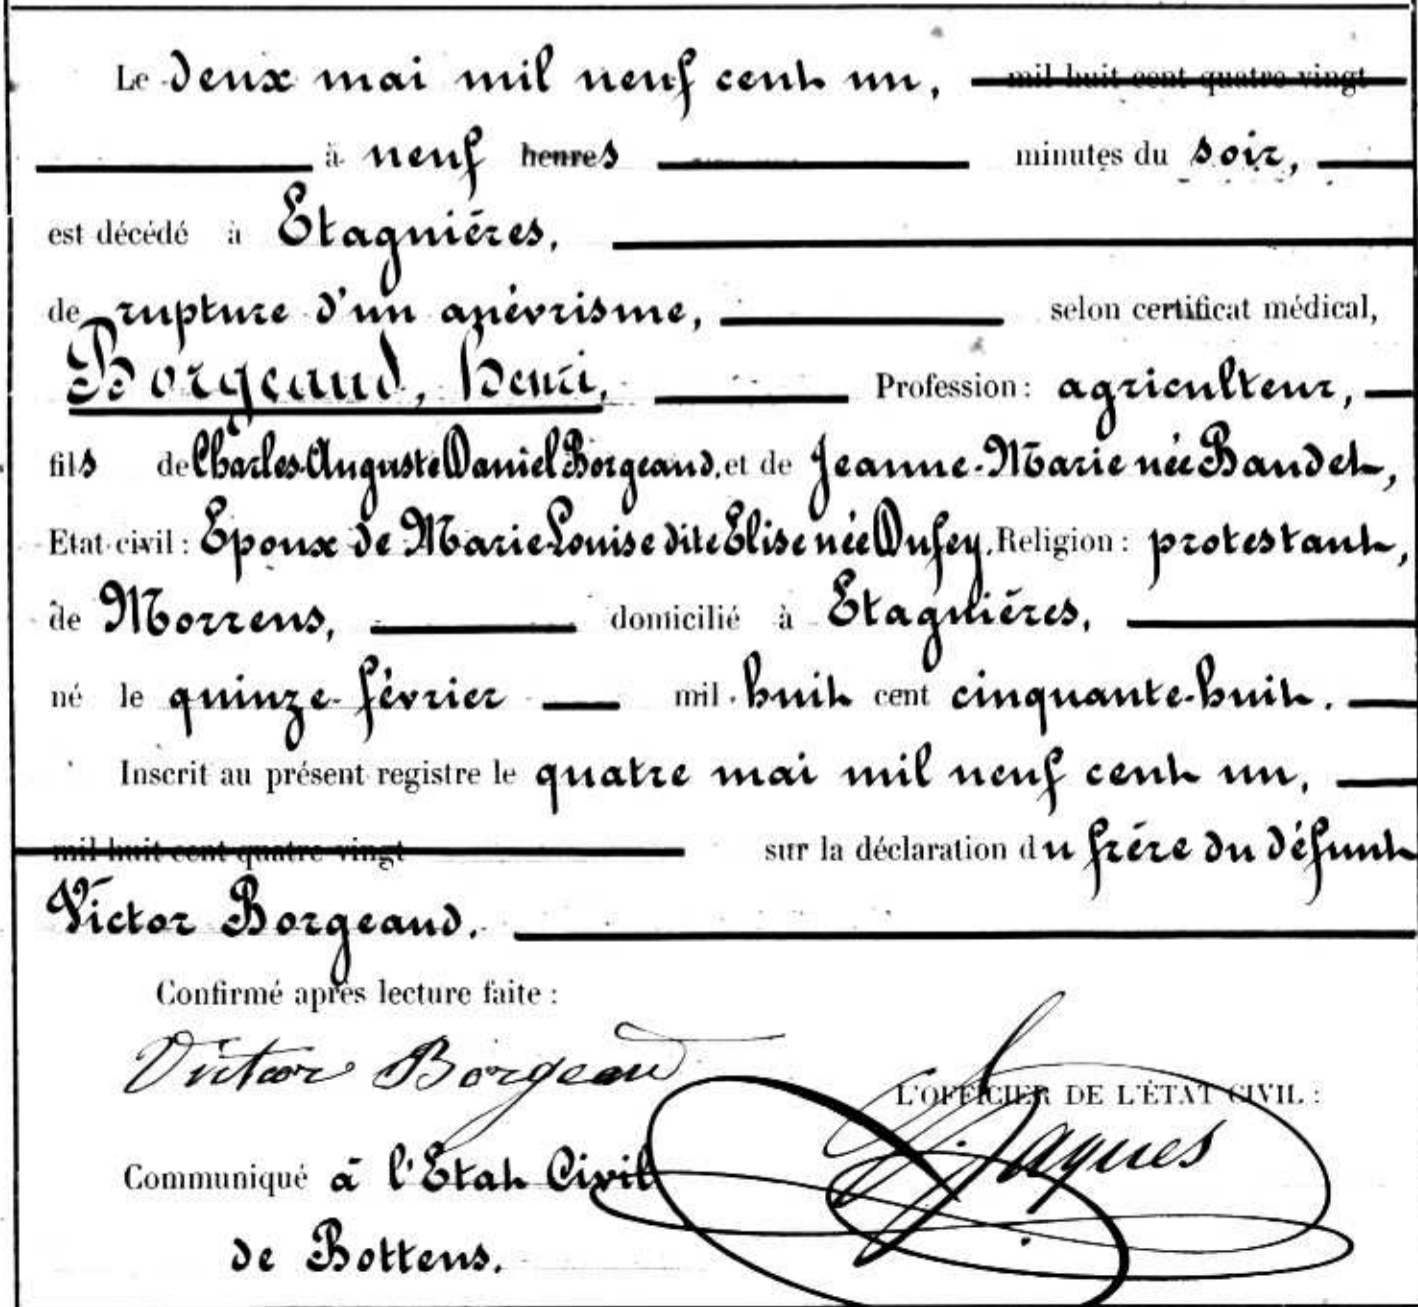 Le deux mai mil neuf cent un, mil huit cent quatre vingt
à neuf heures minutes du soir,
est décédé à Etagnières,
de rupture d'un anévrisme, selon certificat médical,
Borgeaud, Henri, Profession: agriculteur,
fils de Charles-Auguste Daniel Borgeaud, et de Jeanne-Marie née Baudet,
Etat civil: Epoux de Marie Louise dite Elise née Dufey. Religion: protestant,
de Morrens, domicilié à Etagnières,
né le quinze février mil huit cent cinquante-huit.
Inscrit au présent registre le quatre mai mil neuf cent un,
mil huit cent quatre vingt sur la déclaration du frère du défunt
Victor Borgeaud.
Confirmé après lecture faite:
Victor Borgeaud
L'OFFICIER DE L'ÉTAT CIVIL:
Jaques
Communiqué à l'Etat Civil
de Bottens.